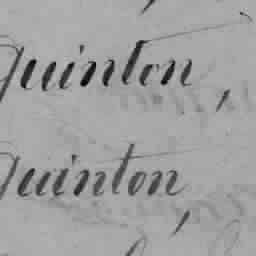 Quinton,
Quinton,